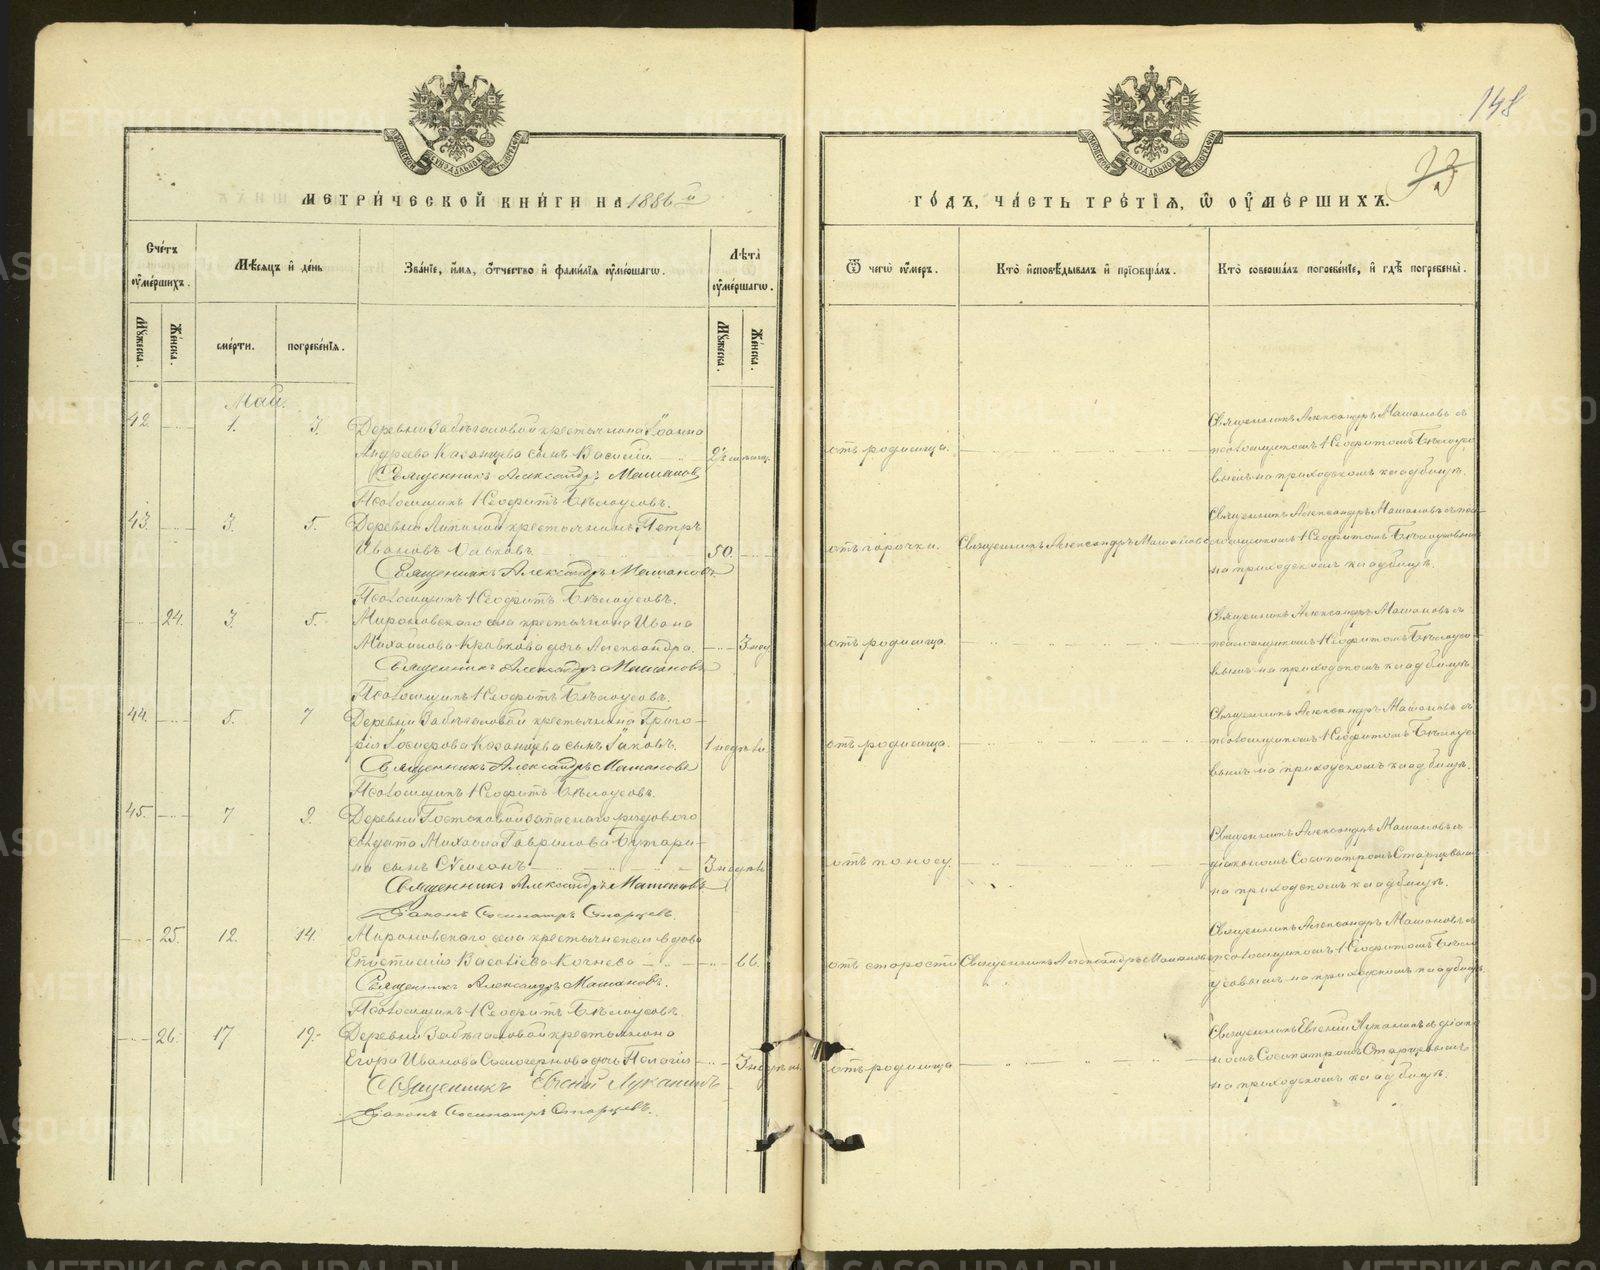 148
33
МЕТРИ́ЧЕСКОЙ КНИ́ГИ НА 1886 й
ГО́ДЪ, ЧА́СТЬ ТРЕ́ТІЯ, Ѿ ОУМЕ́РШИХЪ.
Счетъ оумершихъ.
Мѣсяцъ и день
Званіе, имя, отчество и фамилія оумершагѡ.
Лѣта оумершагѡ.
Ѿ чегѡ оумеръ.
Кто исповѣдывалъ и пріобщалъ.
Кто совершалъ погребеніе, и гдѣ погребены.
Мужеска.
Женска.
смерти.
погребенія.
Мужеска.
Женска.
Май.
42. 1. 3. Деревни Забѣгаловой крестьянина Іоанна
Андреева Казанцева сынъ Василій
Священникъ Александръ Машановъ
Псаломщикъ Неофитъ Бѣлоусовъ.
отъ родимца.
Священникъ Александръ Машановъ съ
псаломщикомъ Неофитомъ Бѣлоусо-
вымъ на приходскомъ кладбищѣ.
43. 3. 5. Деревни Липиной крестьянинъ Петръ
Ивановъ 50.
Священникъ Александръ Машановъ
Псаломщикъ Неофитъ Бѣлоусовъ.
отъ горячки. Священникъ Александръ Машановъ
Священникъ Александръ Машановъ съ пса-
ломщикомъ Неофитомъ Бѣлоусовымъ
на приходскомъ кладбищѣ.
24. 3. 5. Мироновскаго села крестьянина Ивана
Михайлова дочь Александра. 3 нед.
Священникъ Александръ Машановъ
Псаломщикъ Неофитъ Бѣлоусовъ.
отъ родимца.
Священникъ Александръ Машановъ съ
псаломщикомъ Неофитомъ Бѣлоусо-
вымъ на приходскомъ кладбищѣ.
44. 5. 7 Деревни Забѣгаловой крестьянина Григо-
рія Казанцева сынъ Іаковъ. 1 недѣли.
Священникъ Александръ Машановъ
Псаломщикъ Неофитъ Бѣлоусовъ.
отъ родимца.
Священникъ Александръ Машановъ съ
псаломщикомъ Неофитомъ Бѣлоусо-
вымъ на приходскомъ кладбищѣ.
45. 7 9. Деревни запаснаго рядового
солдата Михаила Гаврилова Бутори-
на сынъ Сѵмеонъ 3 недѣли
Священникъ Александръ Машановъ
Діаконъ Сосипатръ Старцевъ.
отъ поносу.
Священникъ Александръ Машановъ съ
діакономъ Сосипатромъ Старцевымъ
на приходскомъ кладбищѣ.
25. 12. 14. Мироновскаго села крестьянская вдова
Васильева Кочнева 66.
Священникъ Александръ Машановъ.
Псаломщикъ Неофитъ Бѣлоусовъ.
отъ старости Священникъ Александръ Машановъ
Священникъ Александръ Машановъ съ
псаломщикомъ Неофитомъ Бѣло-
усовымъ на приходскомъ кладбищѣ.
26. 17 19. Деревни Забѣгаловой крестьянина
Егора Иванова дочь Пелагія 3 недѣли.
Священникъ Евгеній Луканинъ
Діаконъ Сосипатръ Старцевъ.
отъ родимца
Священникъ Евгеній Луканинъ съ діако-
номъ Сосипатромъ Старцевымъ
на приходскомъ кладбищѣ.
METRIKI.GASO-URAL.RU